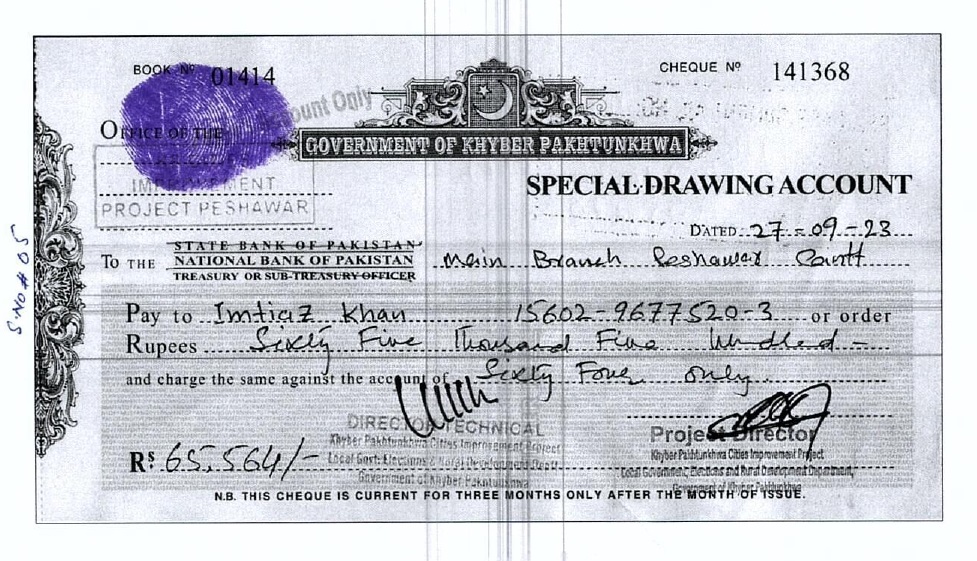 BOOK Nº 01414
CHEQUE Nº 141368
ount Only
OFFICE OF THE
GOVERNMENT OF KHYBER PAKHTUNKHWA
IMPROVEMENT
PROJECT PESHAWAR
SPECIAL DRAWING ACCOUNT
DATED 27-09-23
S.NO # 05
STATE BANK OF PAKISTAN
To THE NATIONAL BANK OF PAKISTAN Main Branch Peshawar Cantt
TREASURY OR SUB-TREASURY OFFICER
Pay to Imtiaz Khan 15602-9677520-3 or order
Rupees Sixty Five Thousand Five Hundred -
and charge the same against the account of Sixty Four only.
DIRECTOR TECHNICAL
Khyber Pakhtunkhwa Cities Improvement Project
Local Govt: Elections & Rural Development Deptt
Government of Khyber Pakhtunkhwa
Project Director
Khyber Pakhtunkhwa Cities Improvement Project
Local Government, Elections and Rural Development Department,
Government of Khyber Pakhtunkhwa.
Rs 65,564/-
N.B. THIS CHEQUE IS CURRENT FOR THREE MONTHS ONLY AFTER THE MONTH OF ISSUE.